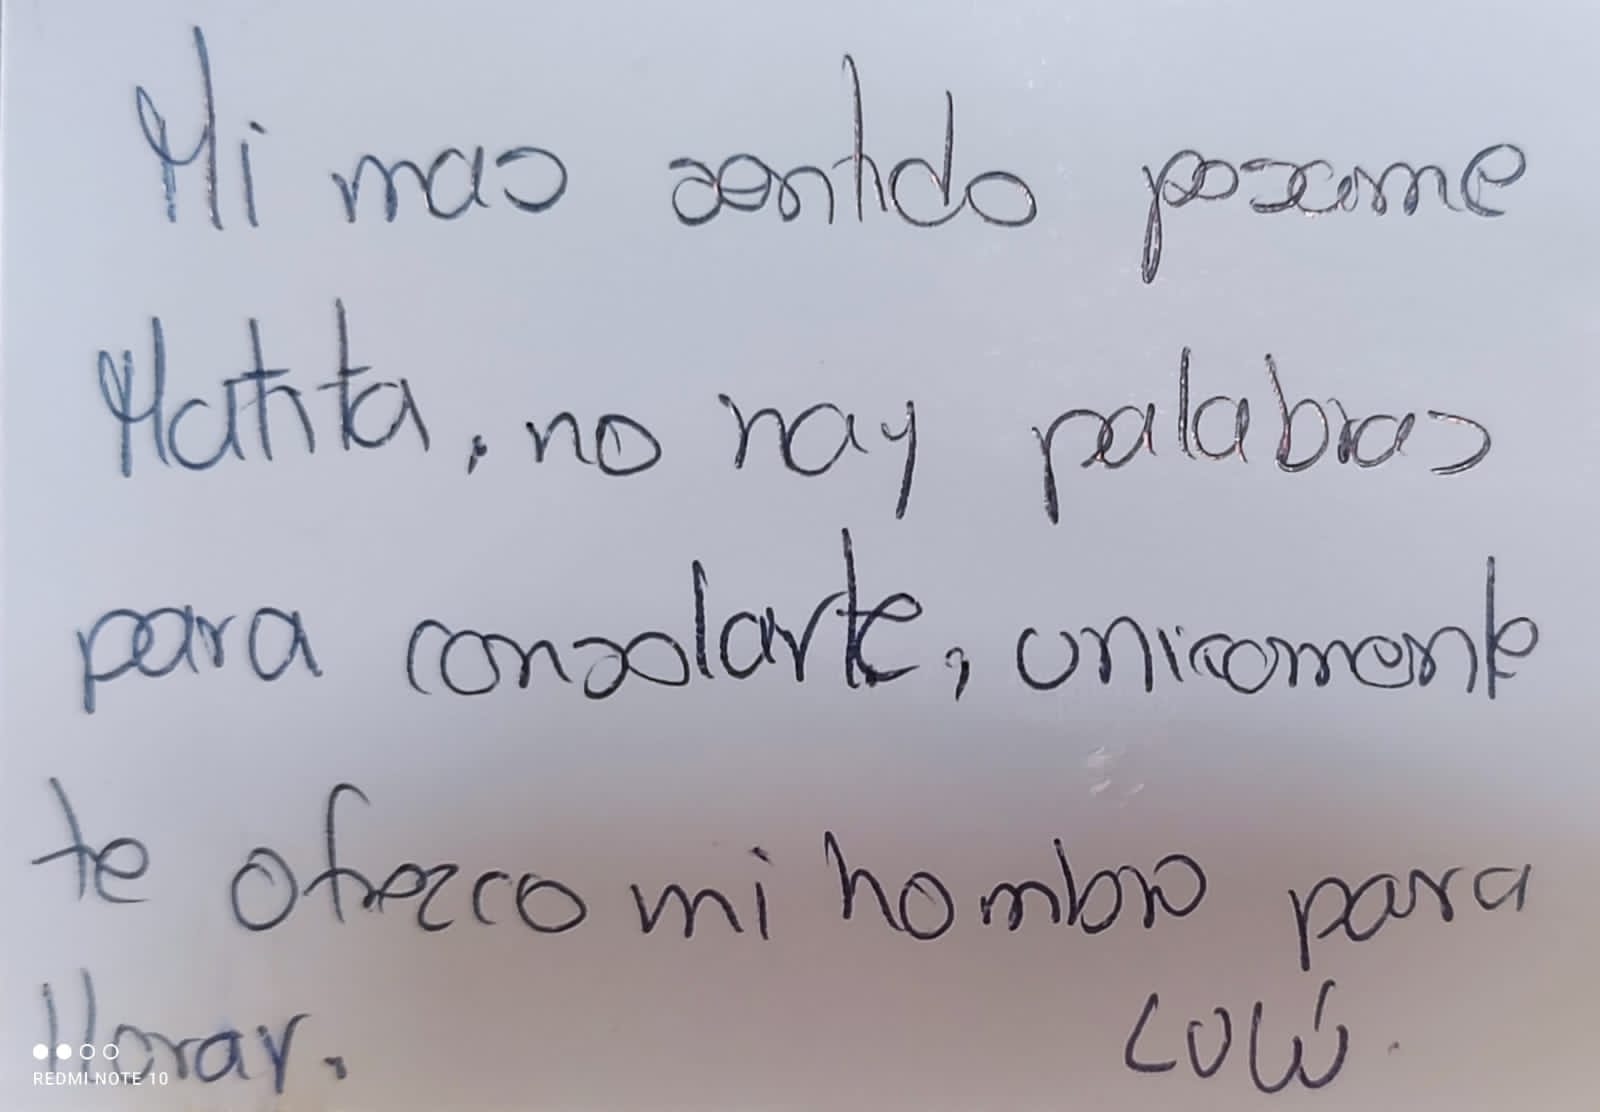 Mi mas sentido pesame
Matita, no hay palabras
para consolarte, unicamente
te ofrezco mi hombro para
llorar. Lulú.
REDMI NOTE 10